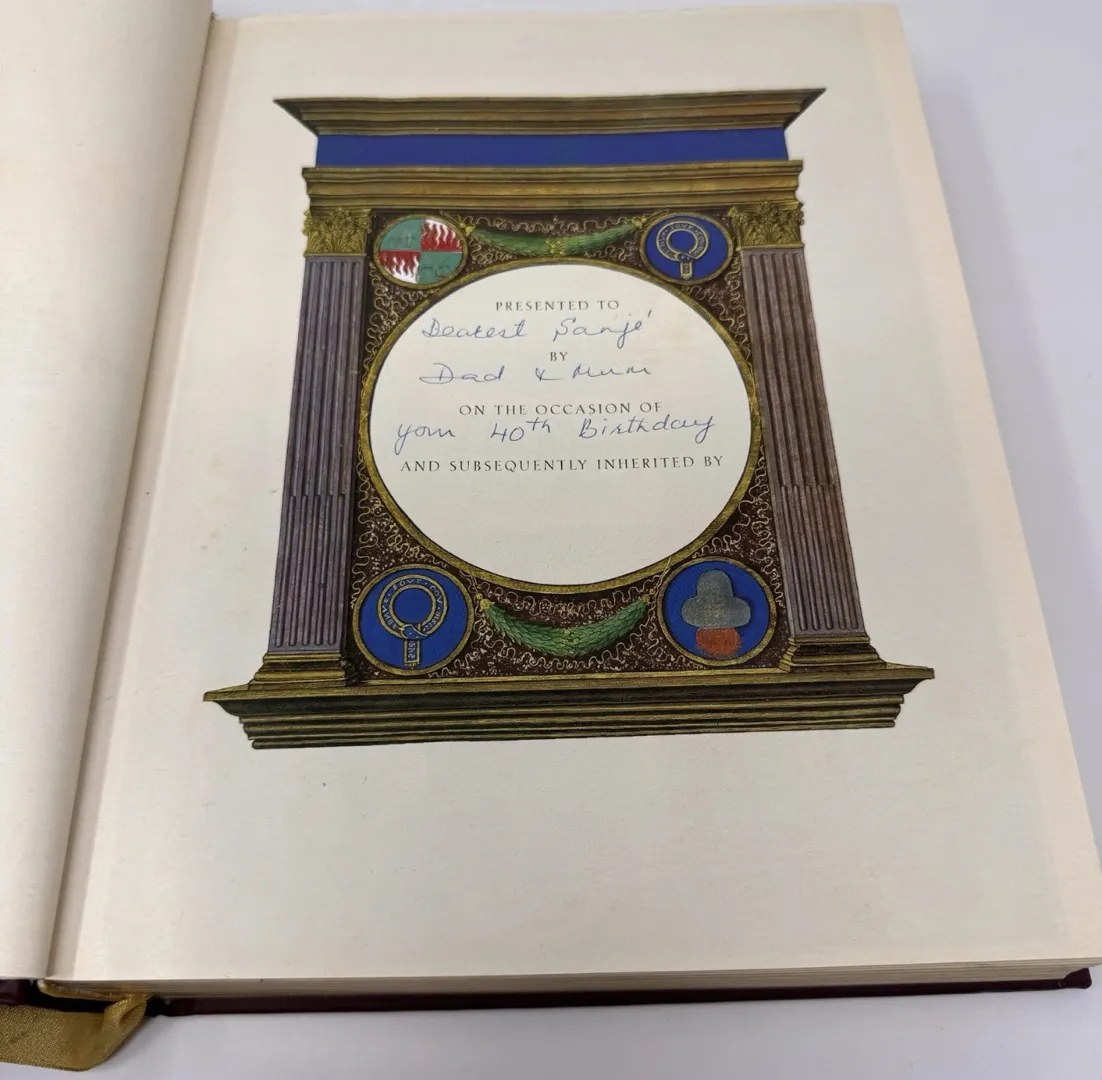 PRESENTED TO
Dearest Sanjé
BY
Dad & Mum
ON THE OCCASION OF
your 40th Birthday
AND SUBSEQUENTLY INHERITED BY